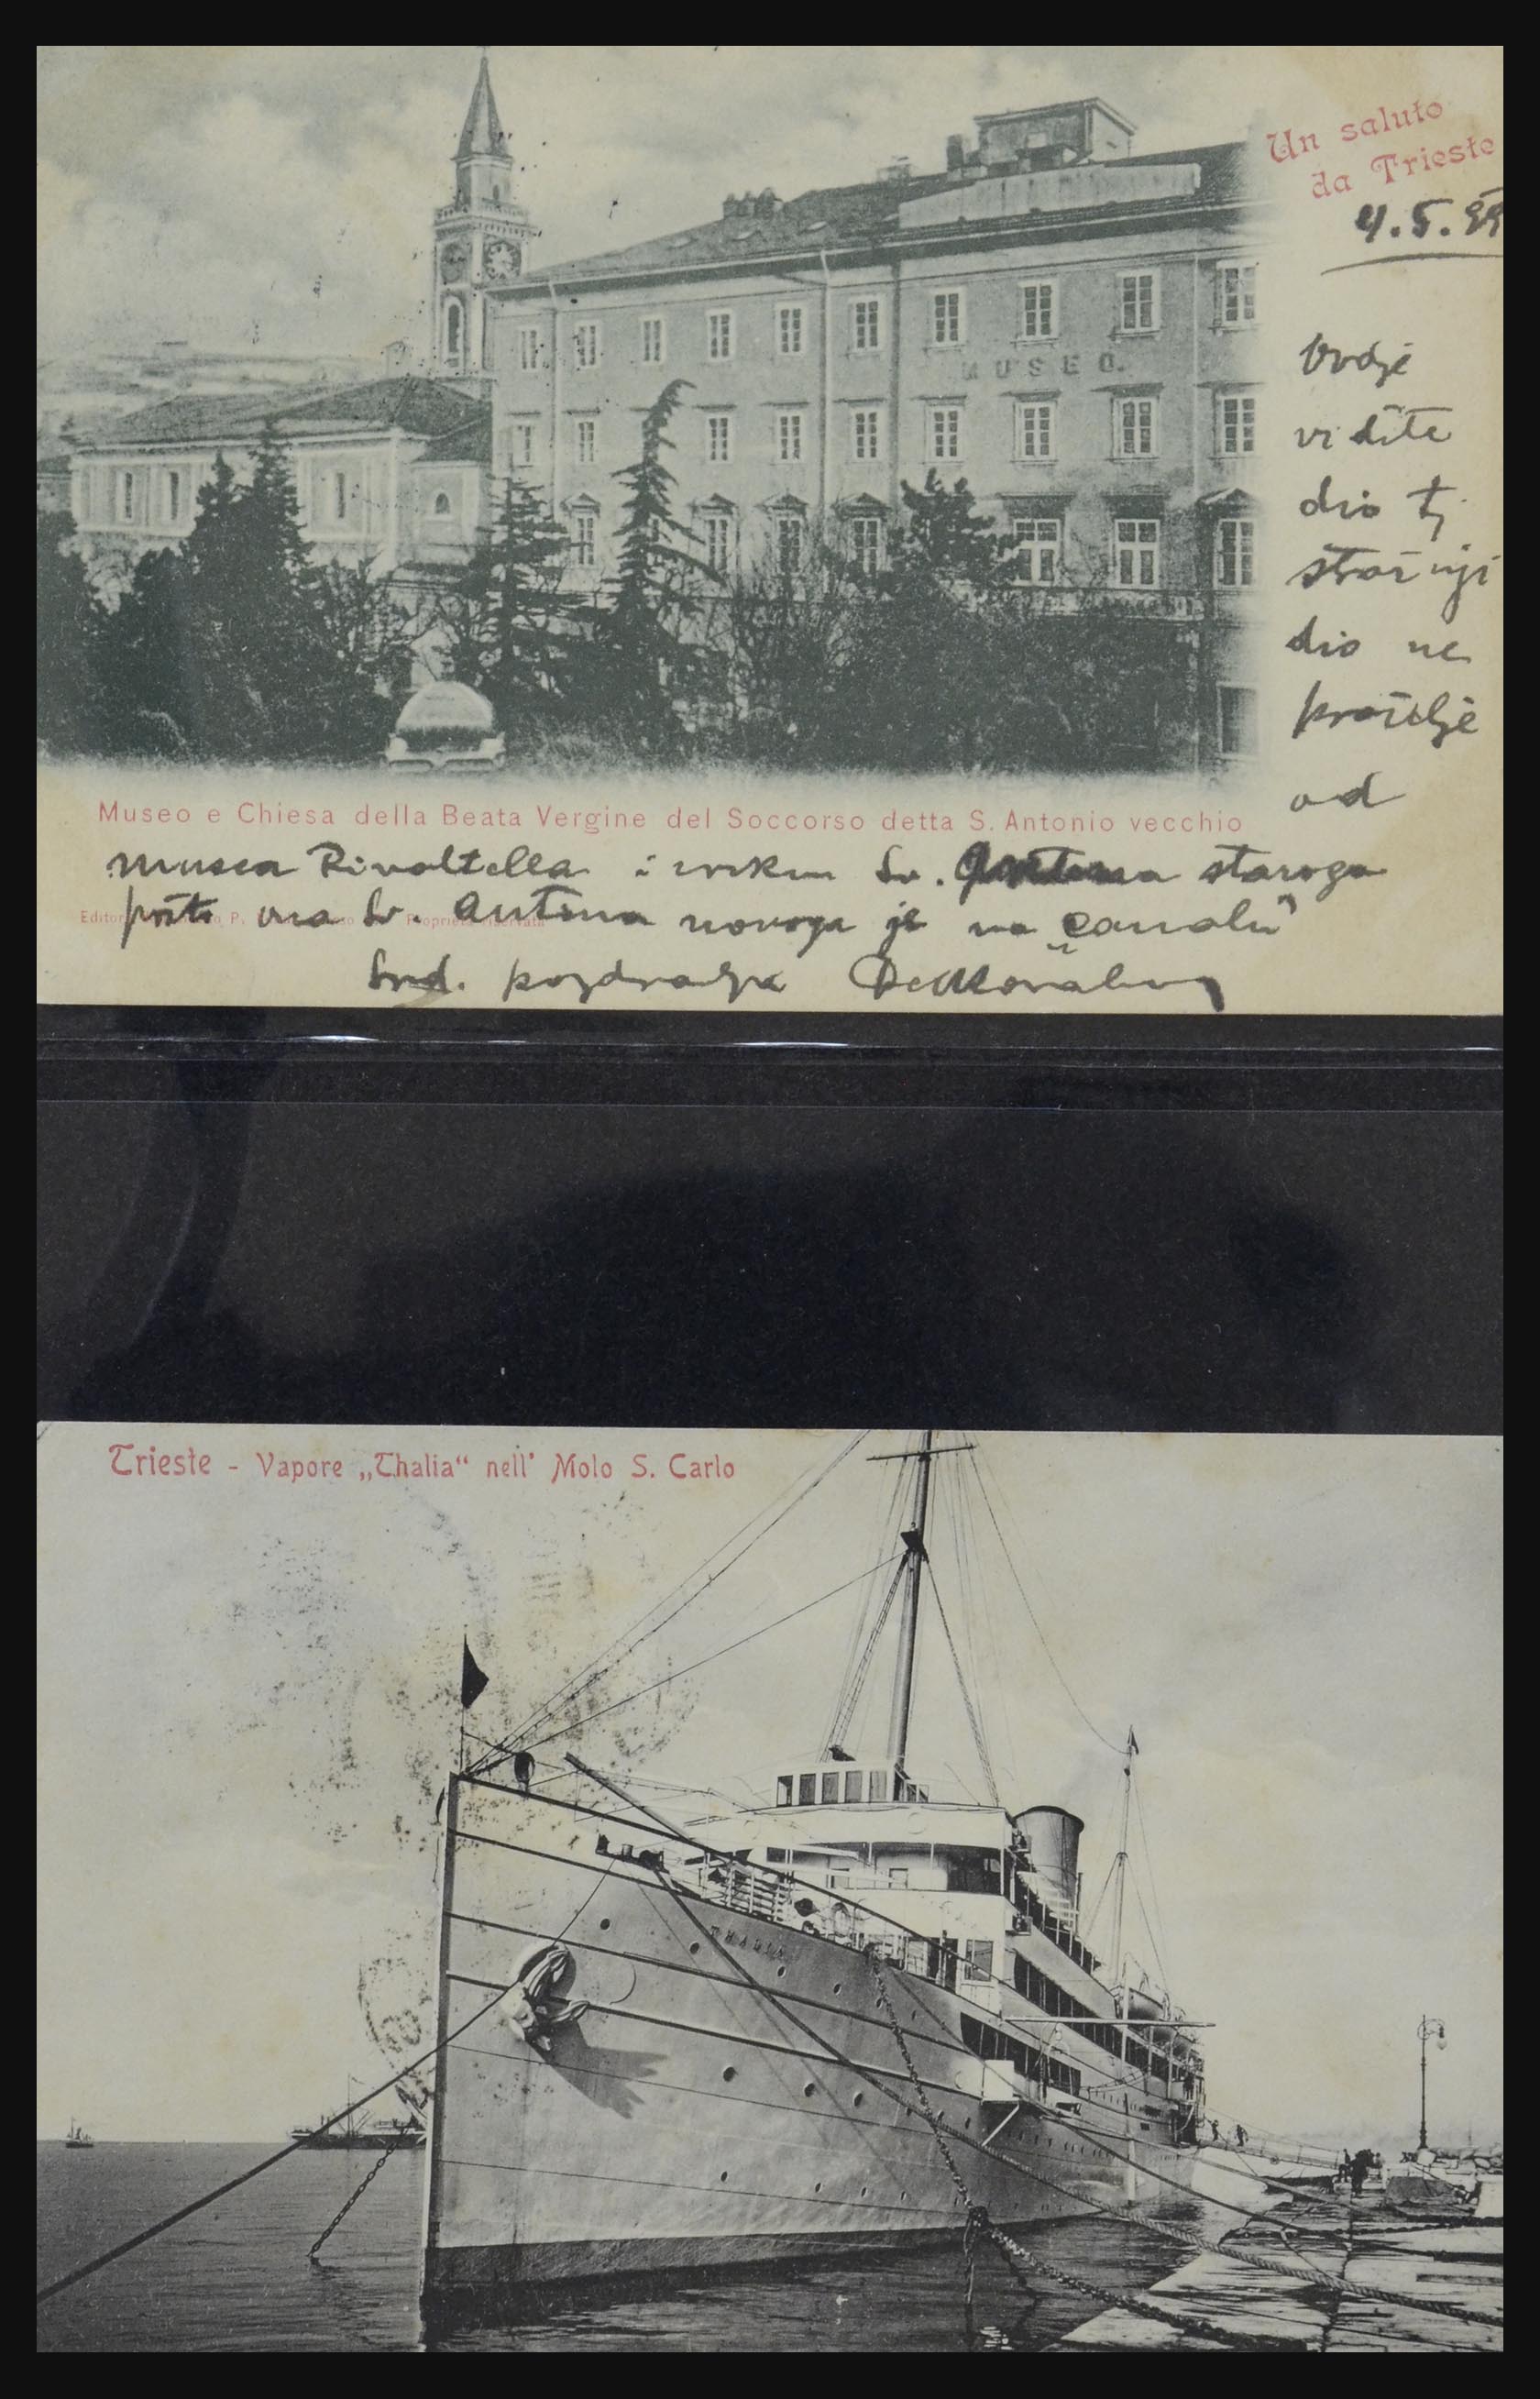 Un saluto
da Trieste
4.5.99
MUSEO.
Ovdje
vidite
dio tj
stražnji
dio ne
pročelje
od
Museo e Chiesa della Beata Vergine del Soccorso detta S. Antonio vecchio
musea Rivoltella i crkvu Sv. Antona staroga
pošto ona Sv. Antona novoga je na „Canalu"
Srd. pozdravlja
Trieste - Vapore „Thalia“ nell' Molo S. Carlo
THALIA